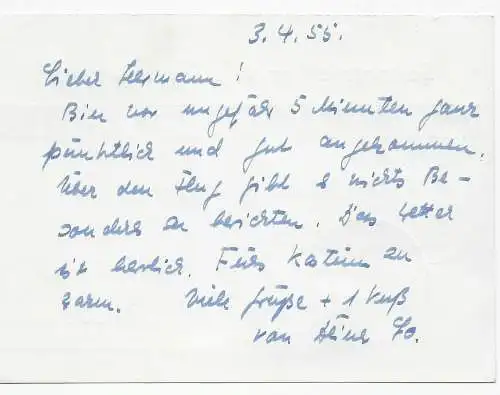 3.4.55.
Lieber Hermann!
Bin vor ungefähr 5 Minuten ganz
pünktlich und gut angekommen.
Über den Flug gibt es nichts Be-
sonderes zu berichten. Das Wetter
ist herrlich. Fürs Kostüm zu
warm. Viele Grüße + 1 Kuß
von Deiner